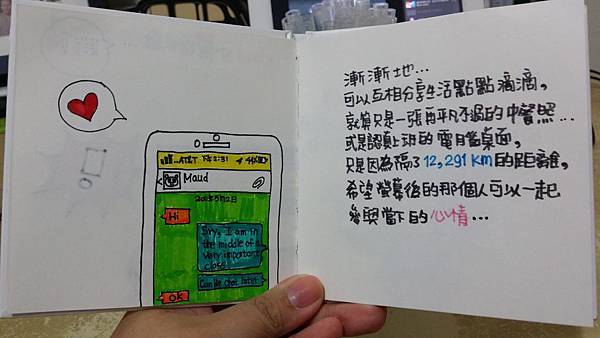 AT&T 下午2:31
Maud
Hi
Sry, I am in
the middle of a
very important
class
Can we chat later
OK
漸漸地...
可以互相分享生活點點滴滴，
就算只是一張再平凡不過的中餐照...
或是認真上班的電腦桌面，
只是因為隔了12,291 km的距離，
希望螢幕後的那個人可以一起
參與當下的心情...